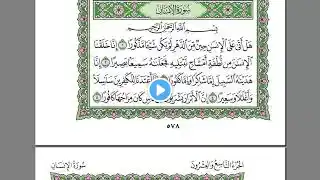 سُورَةُ الإِنسَانِ
بِسْمِ اللَّهِ الرَّحْمَٰنِ الرَّحِيمِ
هَلْ أَتَىٰ عَلَى الْإِنسَانِ حِينٌ مِّنَ الدَّهْرِ لَمْ يَكُن شَيْئًا مَّذْكُورًا ١ إِنَّا خَلَقْنَا
الْإِنسَانَ مِن نُّطْفَةٍ أَمْشَاجٍ نَّبْتَلِيهِ فَجَعَلْنَاهُ سَمِيعًا بَصِيرًا ٢ إِنَّا
هَدَيْنَاهُ السَّبِيلَ إِمَّا شَاكِرًا وَإِمَّا كَفُورًا ٣ إِنَّا أَعْتَدْنَا لِلْكَافِرِينَ سَلَاسِلَا
وَأَغْلَالًا وَسَعِيرًا ٤ إِنَّ الْأَبْرَارَ يَشْرَبُونَ كَأْسٍ كَانَ مِزَاجُهَا كَافُورًا ٥
٥٧٨
الجُزْءُ التَّاسِعُ وَالعِشْرُونَ
سُورَةُ الإِنسَانِ